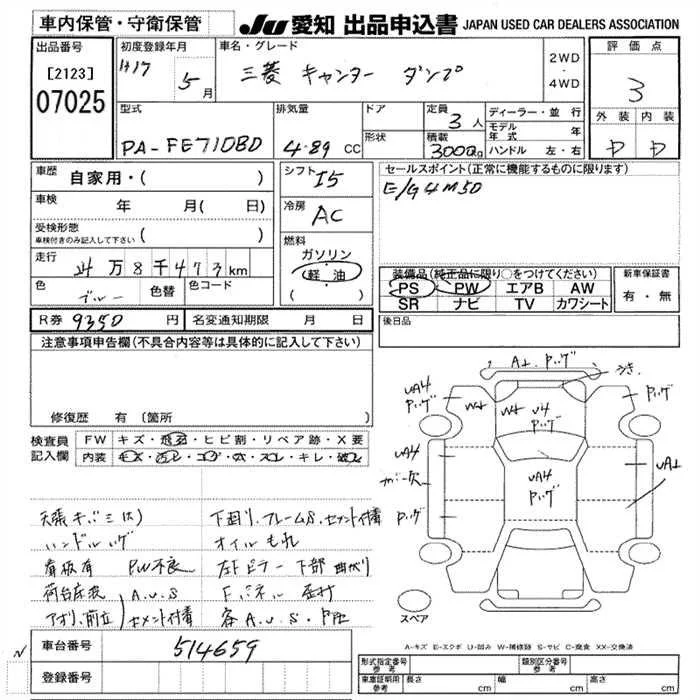 車内保管・守衛保管
JU 愛知 出品申込書 JAPAN USED CAR DEALERS ASSOCIATION
出品番号
[2123]
07025
初度登録年月
H17 5月
車名・グレード
三菱 キャンター ダンプ
2WD
・
4WD
評価点
3
外装 内装
D D
型式
PA-FE71DBD
排気量
4.89 CC
ドア
形状
定員
3人
積載
3000kg
ディーラー・並行
モデル年式 年
ハンドル 左・右
車歴
自家用・( )
車検 年 月( 日)
受検形態
車検付きのみ記入して下さい ( )
走行
万8千473km
色
ブルー
色替
色コード
シフト
I5
冷房
AC
燃料
ガソリン
軽油
( )
セールスポイント(正常に機能するものに限ります)
E/G4M50
装備品(純正品に限り○をつけてください)
PS PW エアB AW
SR ナビ TV カワシート
新車保証書
有・無
R券 9350 円
名変通知期限 月 日
後日品
注意事項申告欄(不具合内容等は具体的に記入して下さい)
修復歴 有 〔箇所
検査員記入欄
FW キズ・飛石・ヒビ割・リペア跡・X要
内装 キズ・汚レ・コゲ・穴・スレ・キレ・破レ
天張キズミ(大)
ハンドルハゲ
看板有 PW不良
荷台床波 A.U.S
アオリ、前立 セメント付着
下回り、フレームS、セメント付着
オイルもれ
左ドピラー下部曲がり
Fパネル 歪
各A.U.S・凹
A⊥ Pッグ
UA4
Pッグ
W⊥
W4
U4
Pッグ
Pッグ
UA4
UA4
Pッグ
UA⊥
Pッグ
スペア
A-キズ E-エクボ U-凹み W-補修跡 S-サビ C-腐食 XX-交換済
車台番号
514659
登録番号
形式指定番号 参考
類別区分番号 参考
車庫証明用 参考
長さ cm
幅 cm
高さ cm